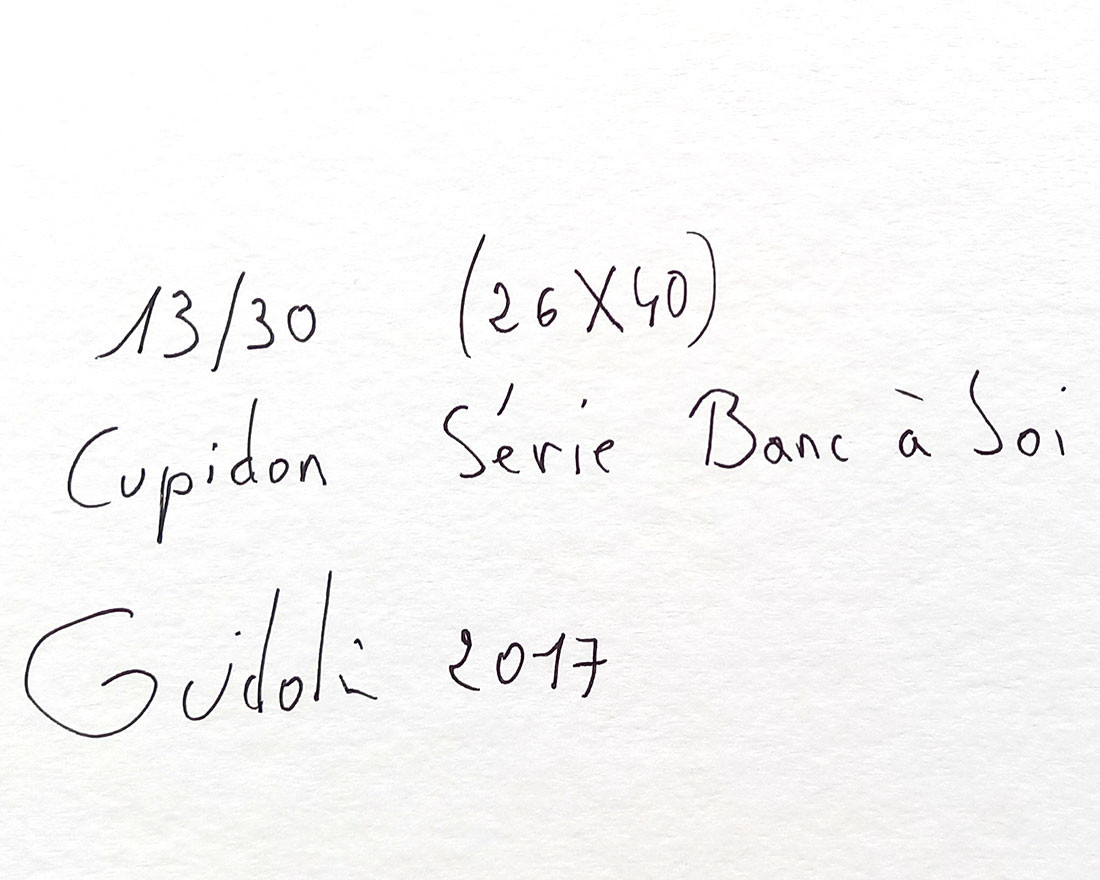 13/30 (26X40)
Cupidon Série Banc à Soi
Guidoli 2017